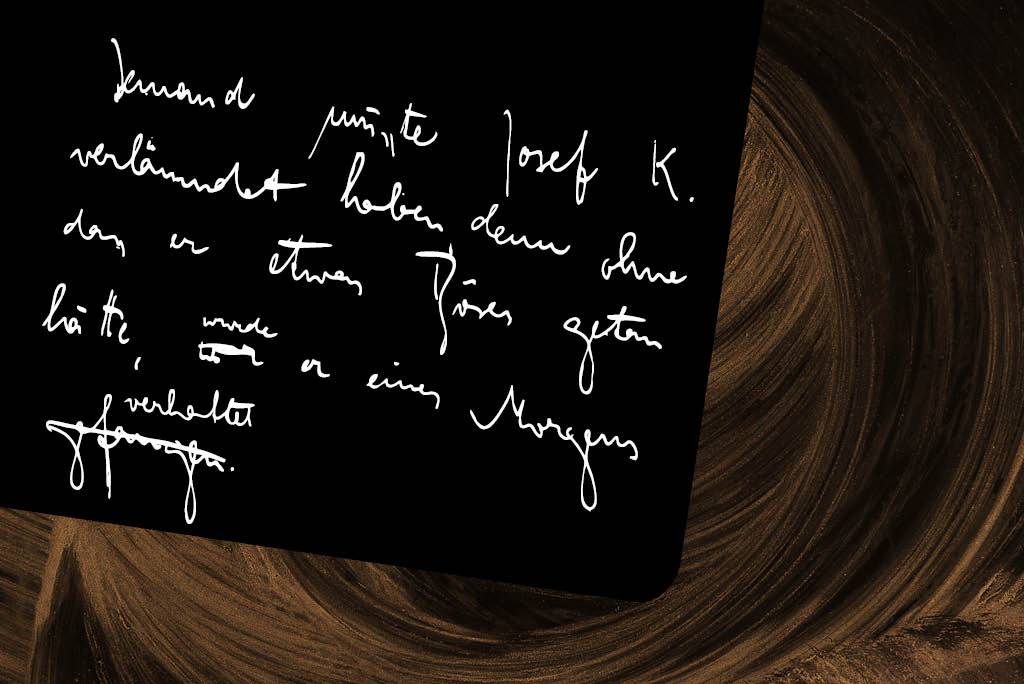 Jemand mußte Josef K.
verläumdet haben, denn ohne
daß er etwas Böses getan
hätte, wurde er eines Morgens
verhaftet
gefangen.